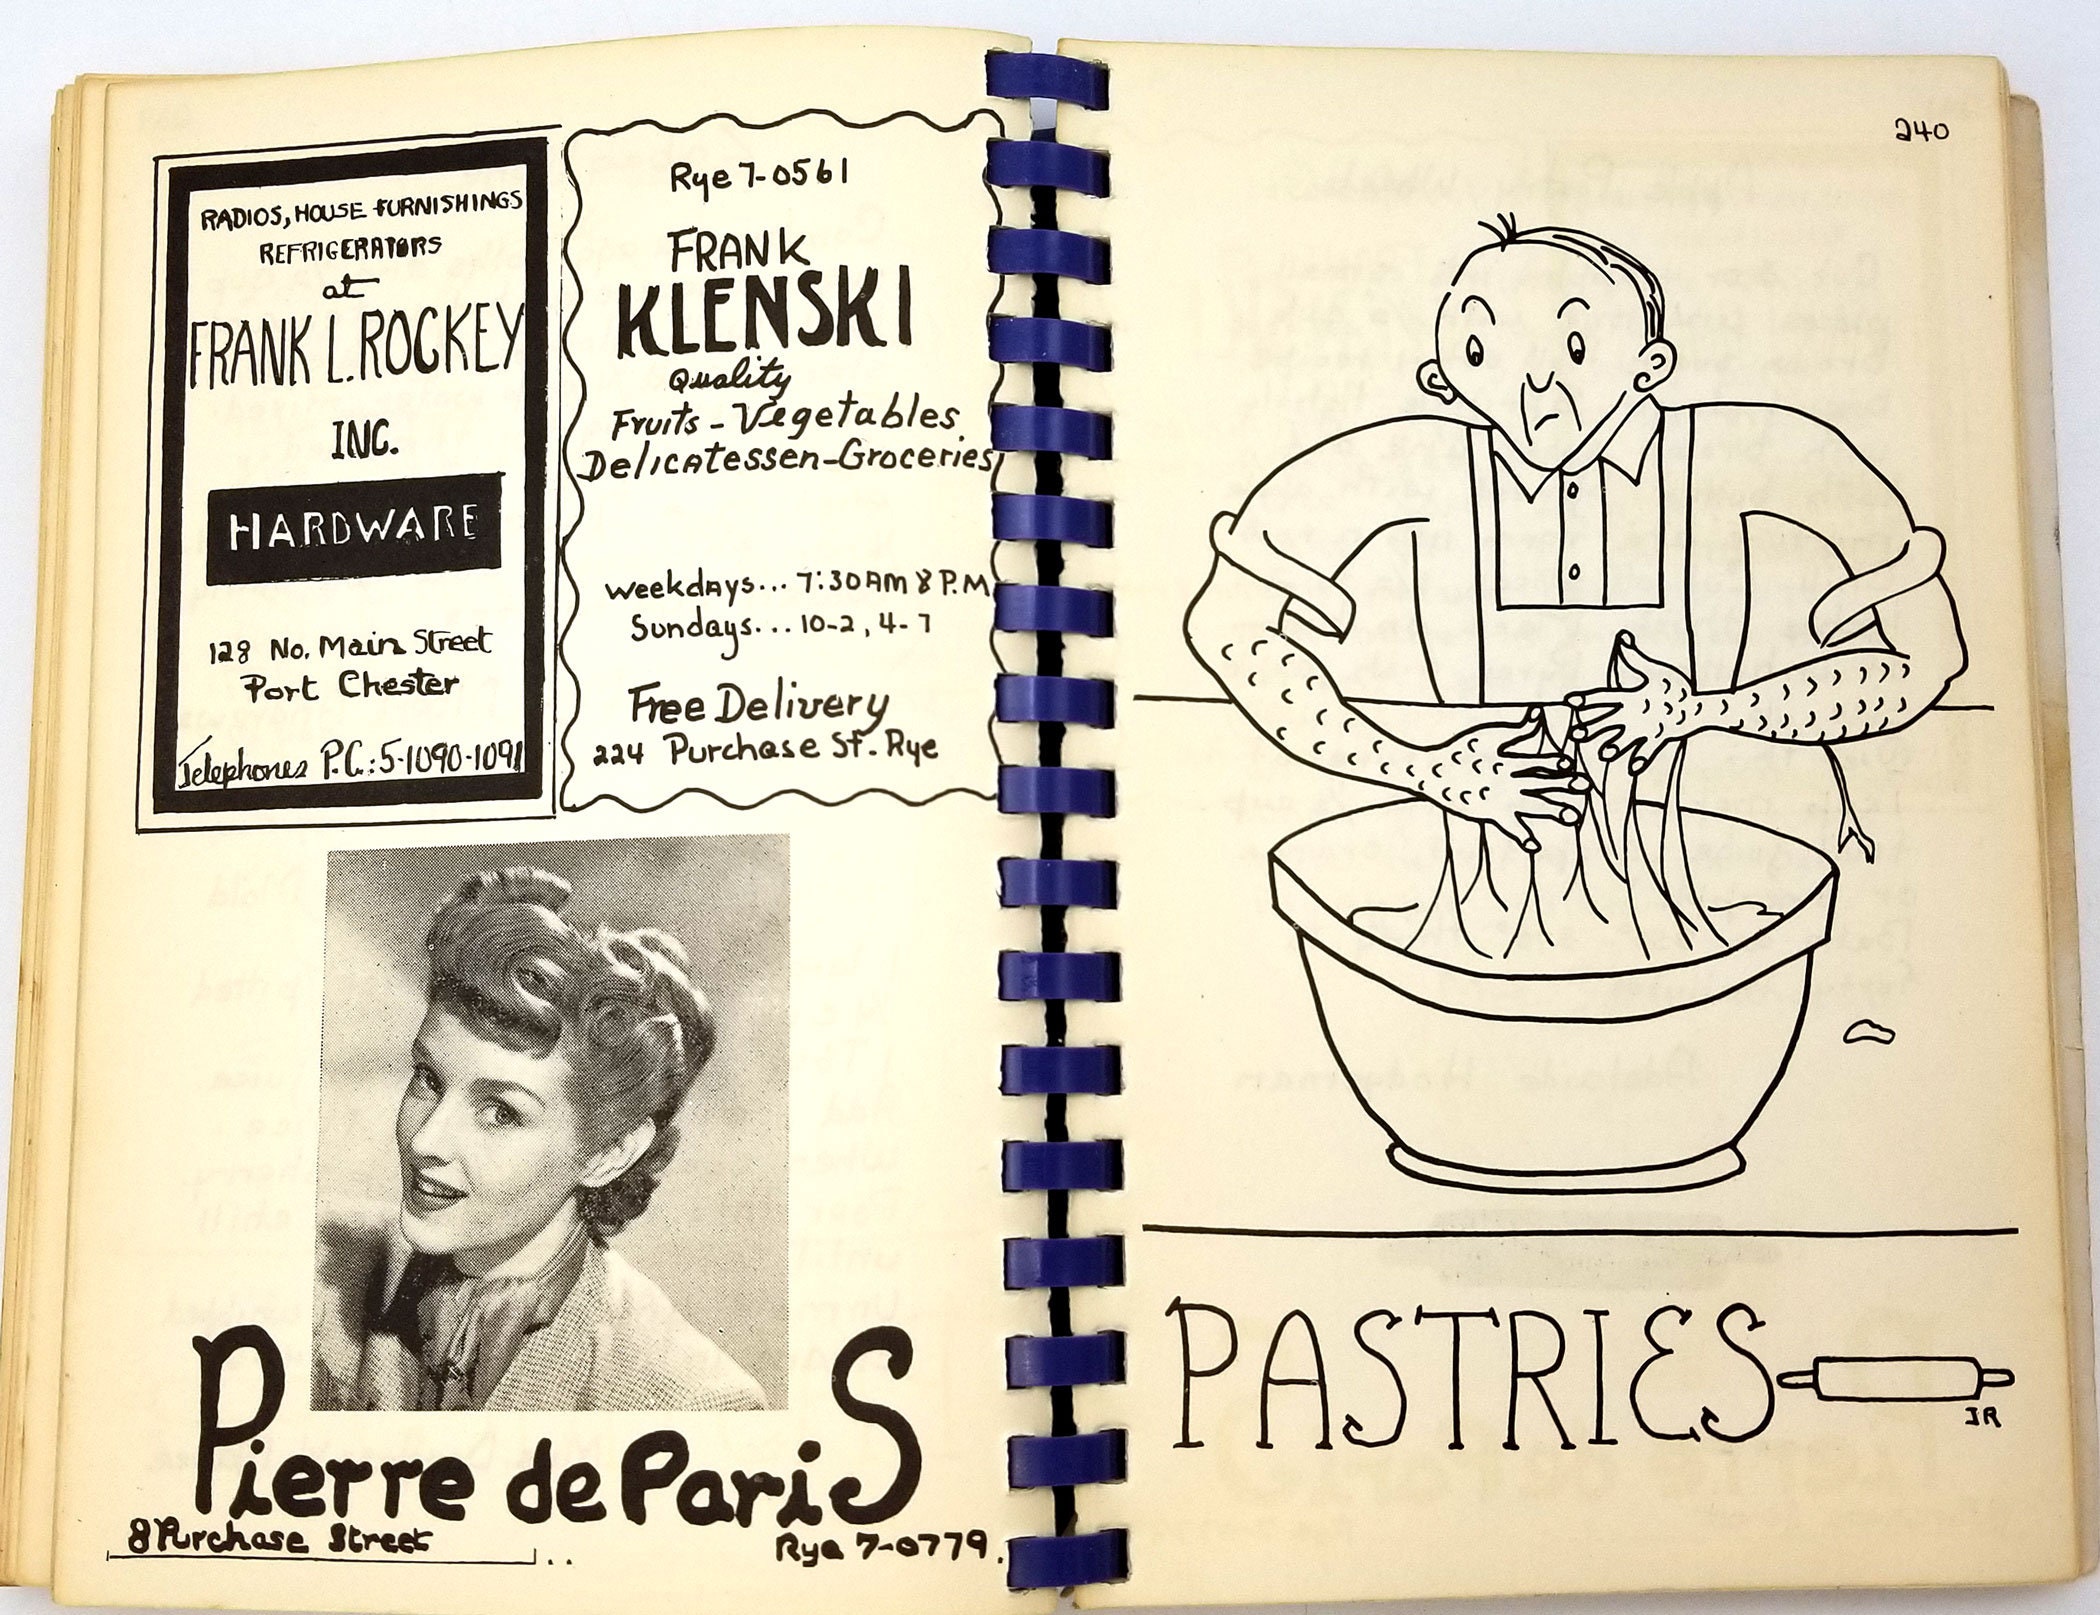 RADIOS, HOUSE FURNISHINGS
REFRIGERATORS
at
FRANK L. ROCKEY
INC.
HARDWARE
128 No. Main Street
Port Chester
Telephones P.C.: 5-1090-1091
Rye 7-0561
FRANK
KLENSKI
Quality
Fruits - Vegetables
Delicatessen-Groceries
Weekdays... 7:30 AM 8 P.M
Sundays... 10-2, 4-7
Free Delivery
224 Purchase St. Rye
Pierre de Paris
8 Purchase Street
Rye 7-0779.
240
PASTRIES
JR